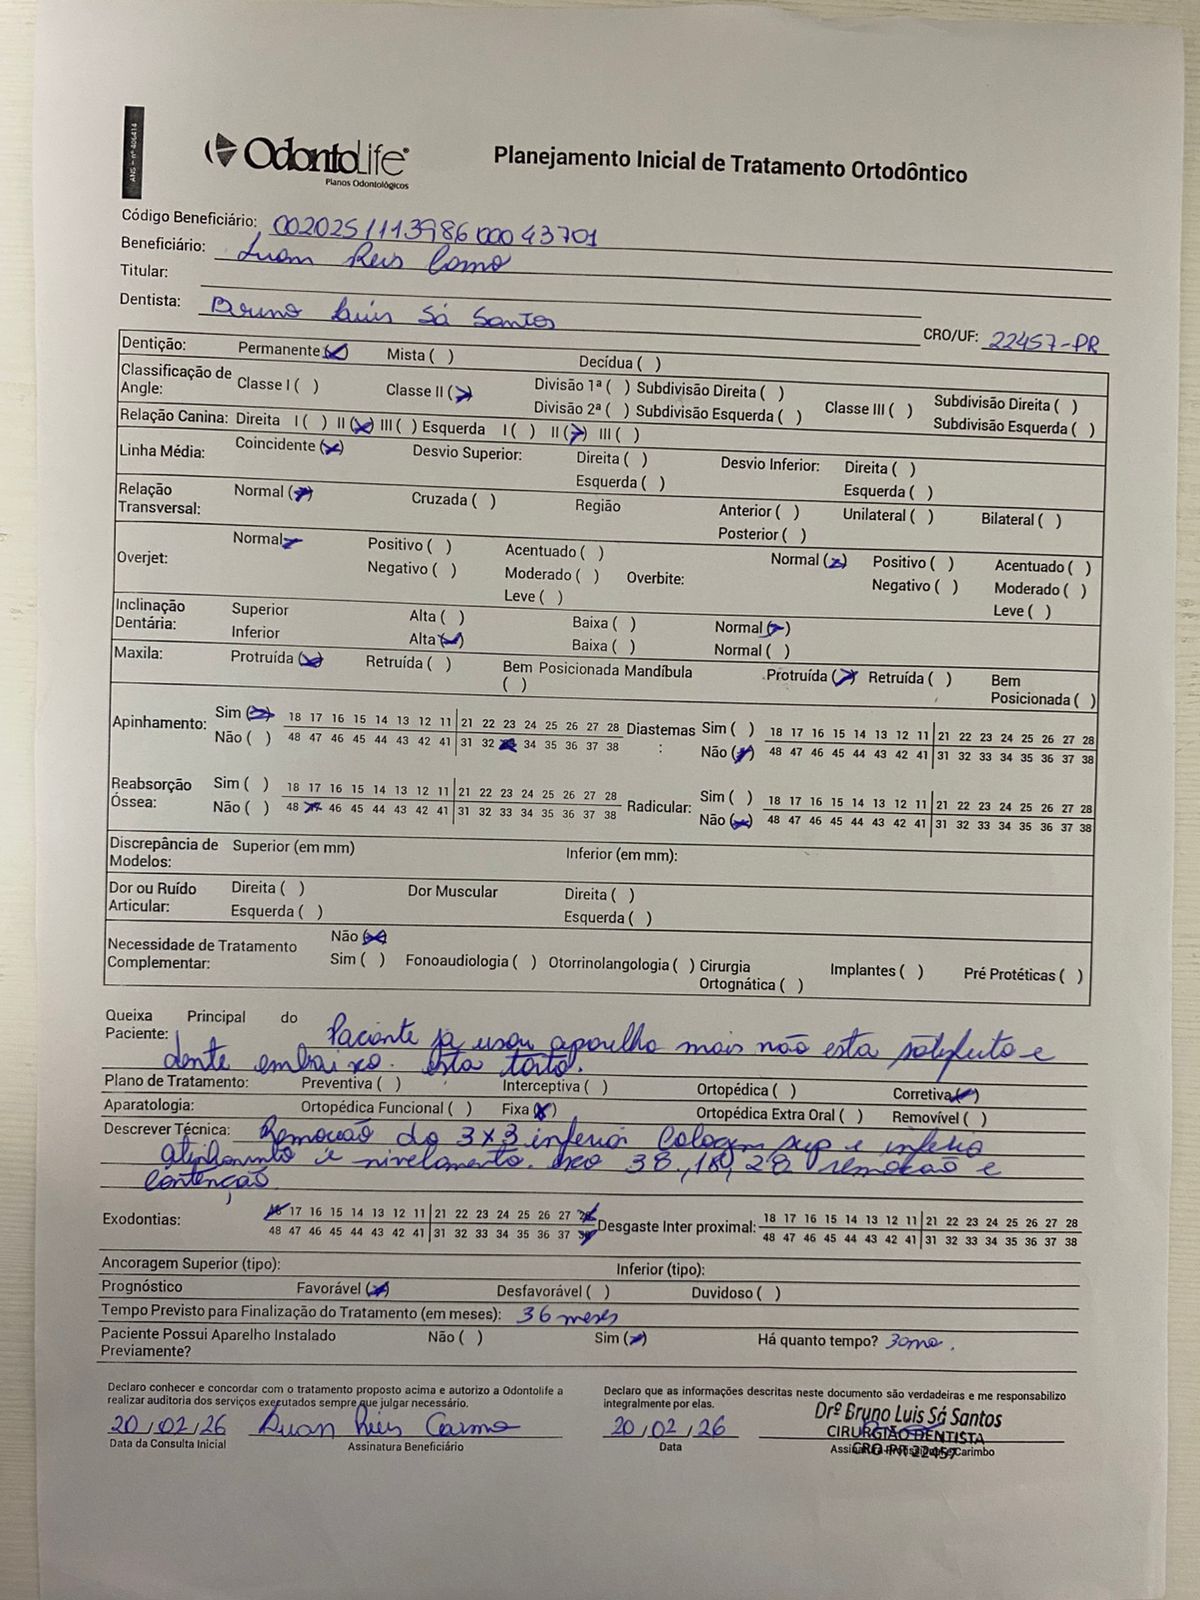 ANS - nº 406414
OdontoLife®
Planos Odontológicos
Planejamento Inicial de Tratamento Ortodôntico
Código Beneficiário: 002025111398600043701
Beneficiário: Luan Reis Carmo
Titular:
Dentista: Bruno Luis Sá Santos CRO/UF: 22457-PR
Dentição: Permanente (x) Mista ( ) Decídua ( )
Classificação de Angle: Classe I ( ) Classe II (x) Divisão 1ª ( ) Subdivisão Direita ( ) Classe III ( ) Subdivisão Direita ( )
Divisão 2ª ( ) Subdivisão Esquerda ( ) Subdivisão Esquerda ( )
Relação Canina: Direita I ( ) II (x) III ( ) Esquerda I ( ) II (x) III ( )
Linha Média: Coincidente (x) Desvio Superior: Direita ( ) Desvio Inferior: Direita ( )
Esquerda ( ) Esquerda ( )
Relação Transversal: Normal (x) Cruzada ( ) Região Anterior ( ) Unilateral ( ) Bilateral ( )
Posterior ( )
Overjet: Normal (x) Positivo ( ) Acentuado ( ) Overbite: Normal (x) Positivo ( ) Acentuado ( )
Negativo ( ) Moderado ( ) Negativo ( ) Moderado ( )
Leve ( ) Leve ( )
Inclinação Dentária: Superior Alta ( ) Baixa ( ) Normal (x)
Inferior Alta (x) Baixa ( ) Normal ( )
Maxila: Protruída (x) Retruída ( ) Bem Posicionada ( ) Mandíbula Protruída (x) Retruída ( ) Bem Posicionada ( )
Apinhamento: Sim (x) 18 17 16 15 14 13 12 11 21 22 23 24 25 26 27 28 Diastemas: Sim ( ) 18 17 16 15 14 13 12 11 21 22 23 24 25 26 27 28
Não ( ) 48 47 46 45 44 43 42 41 31 32 33 34 35 36 37 38 Não (x) 48 47 46 45 44 43 42 41 31 32 33 34 35 36 37 38
Reabsorção Óssea: Sim ( ) 18 17 16 15 14 13 12 11 21 22 23 24 25 26 27 28 Radicular: Sim ( ) 18 17 16 15 14 13 12 11 21 22 23 24 25 26 27 28
Não ( ) 48 47 46 45 44 43 42 41 31 32 33 34 35 36 37 38 Não (x) 48 47 46 45 44 43 42 41 31 32 33 34 35 36 37 38
Discrepância de Modelos: Superior (em mm) Inferior (em mm):
Dor ou Ruído Articular: Direita ( ) Dor Muscular Direita ( )
Esquerda ( ) Esquerda ( )
Necessidade de Tratamento Complementar: Não (x)
Sim ( ) Fonoaudiologia ( ) Otorrinolangologia ( ) Cirurgia Ortognática ( ) Implantes ( ) Pré Protéticas ( )
Queixa Principal do Paciente: Paciente já usou aparelho mais não esta satisfeito e
dente embaixo. esta torto.
Plano de Tratamento: Preventiva ( ) Interceptiva ( ) Ortopédica ( ) Corretiva (x)
Aparatologia: Ortopédica Funcional ( ) Fixa (x) Ortopédica Extra Oral ( ) Removível ( )
Descrever Técnica: Remoção do 3x3 inferior Colagem sup e inferio
alinhamento e nivelamento. exo 38, 18, 28 remoção e
Contenção
Exodontias: 18 17 16 15 14 13 12 11 21 22 23 24 25 26 27 28 Desgaste Inter proximal: 18 17 16 15 14 13 12 11 21 22 23 24 25 26 27 28
48 47 46 45 44 43 42 41 31 32 33 34 35 36 37 38 48 47 46 45 44 43 42 41 31 32 33 34 35 36 37 38
Ancoragem Superior (tipo): Inferior (tipo):
Prognóstico Favorável (x) Desfavorável ( ) Duvidoso ( )
Tempo Previsto para Finalização do Tratamento (em meses): 36 meses
Paciente Possui Aparelho Instalado Previamente? Não ( ) Sim (x) Há quanto tempo? 3 ano.
Declaro conhecer e concordar com o tratamento proposto acima e autorizo a Odontolife a
realizar auditoria dos serviços executados sempre que julgar necessário.
Declaro que as informações descritas neste documento são verdadeiras e me responsabilizo
integralmente por elas.
20/02/26 Luan Reis Carmo 20/02/26
Drº Bruno Luis Sá Santos
CIRURGIÃO DENTISTA
CRO-PR 22457
Data da Consulta Inicial Assinatura Beneficiário Data Assinatura Profissional e Carimbo